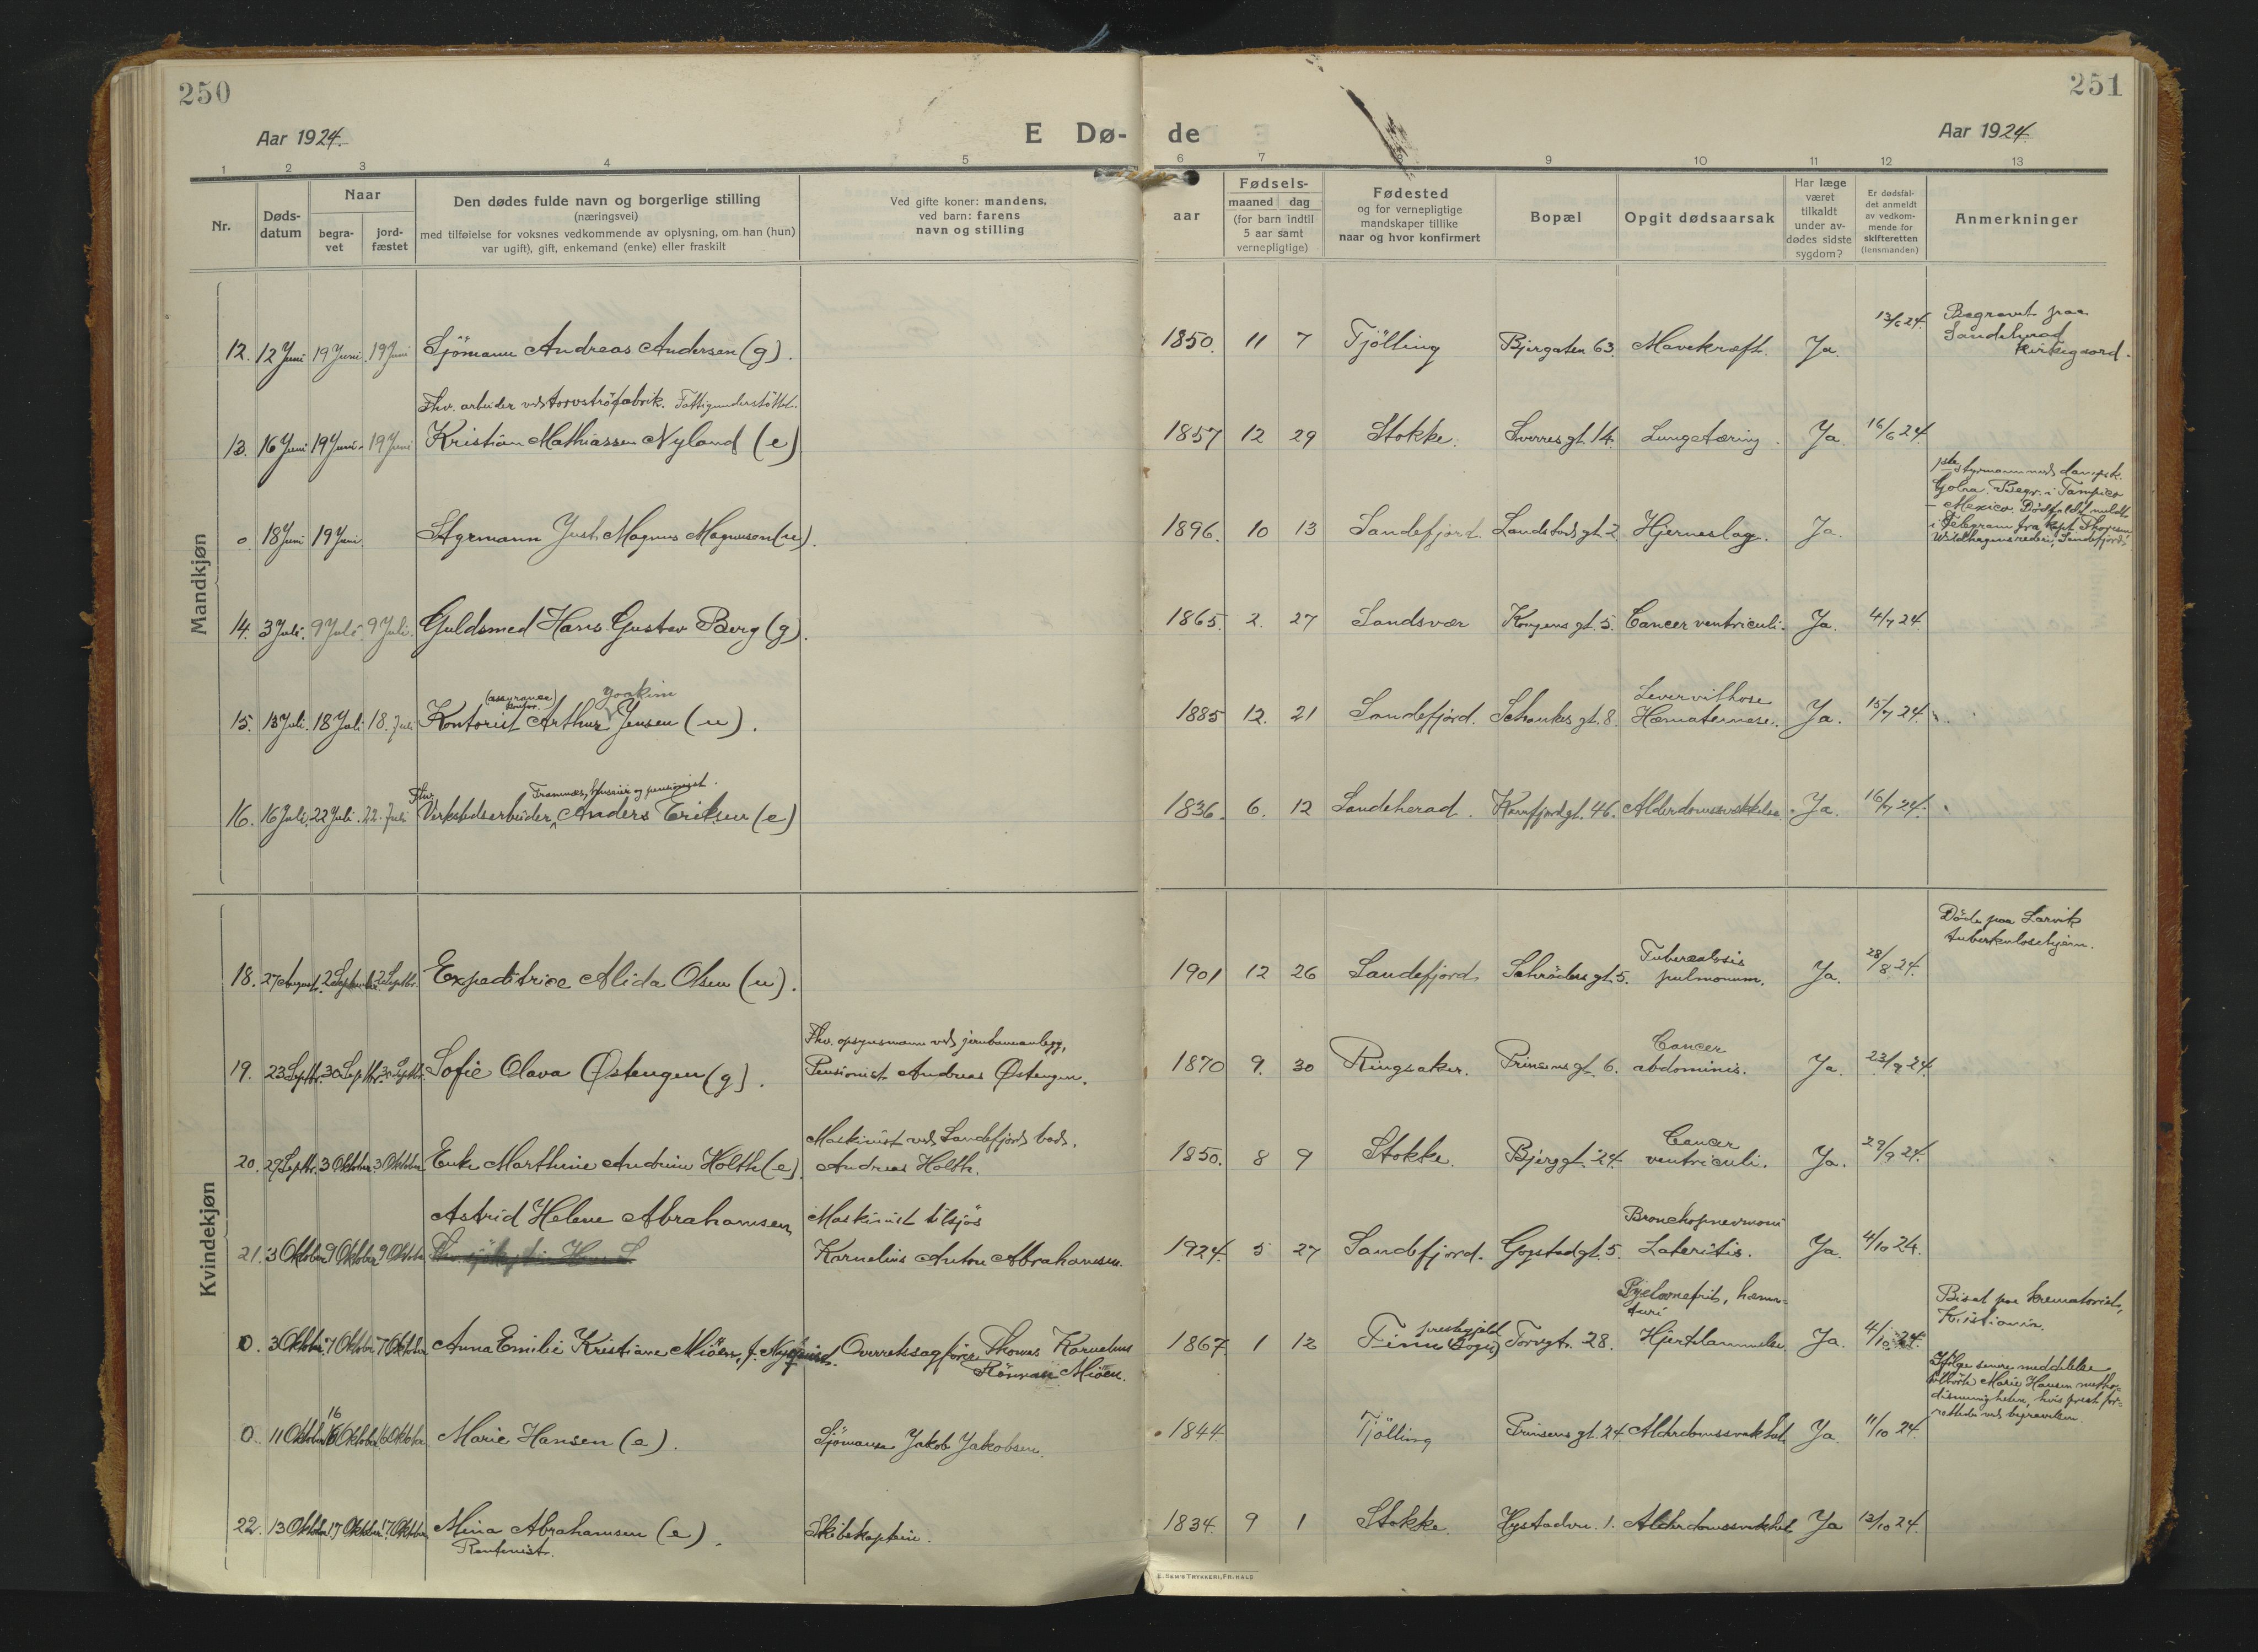 250
251
Aar 1924.
E Dø-
de
Aar 1924.
1 2 3 4 5 6 7 9 10 11 12 13
Nr.
Døds-
datum
Naar
begra-
vet
jord-
fæstet
Den dødes fulde navn og borgerlige stilling
(næringsvei)
med tilføielse for voksnes vedkommende av oplysning, om han (hun)
var ugift), gift, enkemand (enke) eller fraskilt
Ved gifte koner: mandens,
ved barn: farens
navn og stilling
aar
Fødsels-
maaned dag
(for barn indtil
5 aar samt
vernepligtige)
Fødested
og for vernepligtige
mandskaper tillike
naar og hvor konfirmert
Bopæl
Opgit dødsaarsak
Har læge
været
tilkaldt
under av-
dødes sidste
sygdom?
Er dødsfal-
det anmeldt
av vedkom-
mende for
skifteretten
(lensmanden)
Anmerkninger
Mandkjøn
12. 12 Juni 19 Juni. 19 Juni Sjömann Andreas Andersen (g). 1850. 11 7 Tjölling Bjergaten 63. Mavekræft. Ja. 13/6 24.
Begravet paa
Sandeherad
Kirkegaard.
Fhv. arbeider ved torvströfabrik. Fattigunderstöttet.
13. 16 Juni 19 Juni. 19 Juni Kristian Mathiassen Nyland (e) 1857 12 29 Stokke. Sverres gt. 14. Lungetæring. Ja. 16/6 24.
1ste styrmann ved dampsk.
Begr. i Tampico
– Mexico. Dödsfaldet meldt
i Telegram fra Kapt.
rederi, Sandefjord.
0 18 Juni 19 Juni. Styrmann Just Magnus Magnussen (u). 1896. 10 13 Sandefjord. Landstads gt. 2. Hjerneslag. Ja.
14. 3 Juli. 9 Juli 9 Juli. Guldsmed Hans Gustav Berg (g). 1865. 2. 27 Sandsvær Kongens gt. 5. Cancer ventriculi. Ja. 4/7 24.
(assurance)
kontor.
Joakim
15. 13 Juli. 18 Juli 18. Juli Kontorist Arthur Jensen (u). 1885 12. 21 Sandefjord. Schankes gt. 8. Ja. 15/7 24.
Fhv. Framnæs, huseier og pensionist.
16. 16 Juli. 22 Juli. 22. Juli Verkstedsarbeider, Anders Eriksen (e) 1836. 6. 12 Sandeherad. gt. 46. Alderdomssvækkelse. Ja. 16/7 24.
Kvindekjøn
Døde paa Larvik
tuberkulosehjem.
18. 27 August. 2 September. 2 Septbr. Expeditrice Alida Olsen (u). 1901 12 26 Sandefjord Schröders gt. 5. Tuberculosis
pulmonum. Ja. 28/8 24.
19. 23 Septbr. 30 Septbr. 30 Septbr. Sofie Olava Østengen (g). Fhv. opsynsmann ved jernbaneanlegg,
Pensionist Andreas Østengen. 1870 9. 30 Ringsaker. Prinsens gt. 6. Cancer
abdominis. Ja. 23/9 24.
20. 29 Septbr. 3 Oktober 3 Oktober Enke Marthine Andrine Holth (e). Maskinist ved Sandefjords bad.
Andreas Holth. 1850. 8 9 Stokke. Bjerggt. 24. Cancer
ventriculi. Ja. 29/9 24.
Astrid Helene Abrahamsen
21. 3 Oktober 9 Oktober 9 Oktober Maskinist tilsjös
Karnelius Anton Abrahamsen. 1924. 5 27 Sandefjord. Gogstadgt. 5. Bronchopnevmoni
Ja. 4/10 24.
0. 3 Oktober 7 Oktober 7 Oktober Anna Emilie Kristiane Miöen, f. Nyquist. Overretssagförer Thomas Karnelius
Rönnau Miöen. 1867. 1 12 prestegjeld
Torvgt. 28. Pyelonefrit, hæma-
turi
Hjertelammelse. Ja. 4/10 24.
Bisat paa krematoriet,
Kristiania.
Ifölge senere meddelelse
tilhörte Marie Hansen metho-
distmenigheten, hvis prest for-
rettede ved begravelsen.
0. 11 Oktober 16 Oktober 16 Oktober Marie Hansen (e). Sjömann Jakob Jakobsen. 1844. Tjölling Prinsens gt. 24. Alderdomssvakhet. Ja. 11/10 24.
22. 13 Oktober 17 Oktober 17 Oktober Mina Abrahamsen (e). Skibskaptein. 1834. 9 1 Stokke. Hystadvn. 1. Alderdomssvakhet Ja 13/10 24.
Rentenist.
E. SEM'S TRYKKERI, FR.HALD